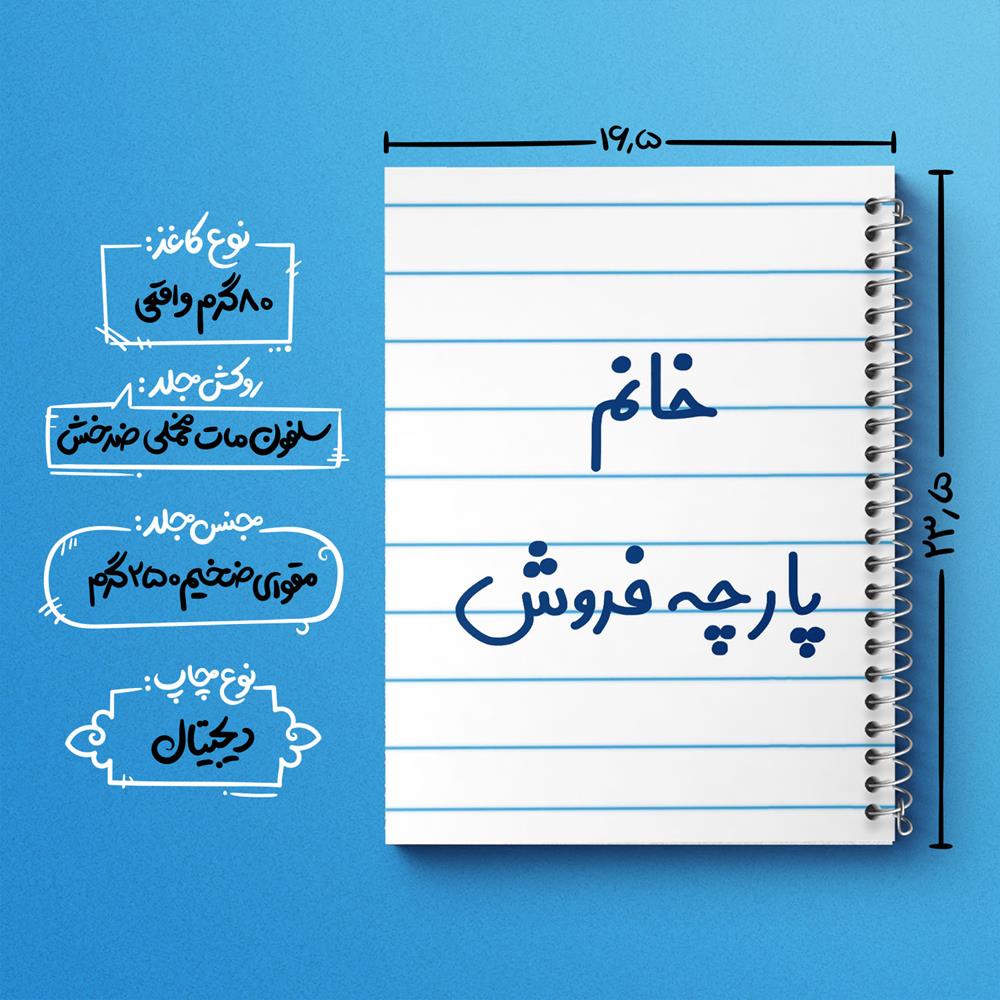 ۱۶٫۵
۲۳٫۵
خانم
پارچه فروش
نوع کاغذ:
۸۰ گرم واقعی
روکش جلد:
سلفون مات مخملی ضدخش
جنس جلد:
مقوای ضخیم ۲۵۰ گرم
نوع چاپ:
دیجیتال